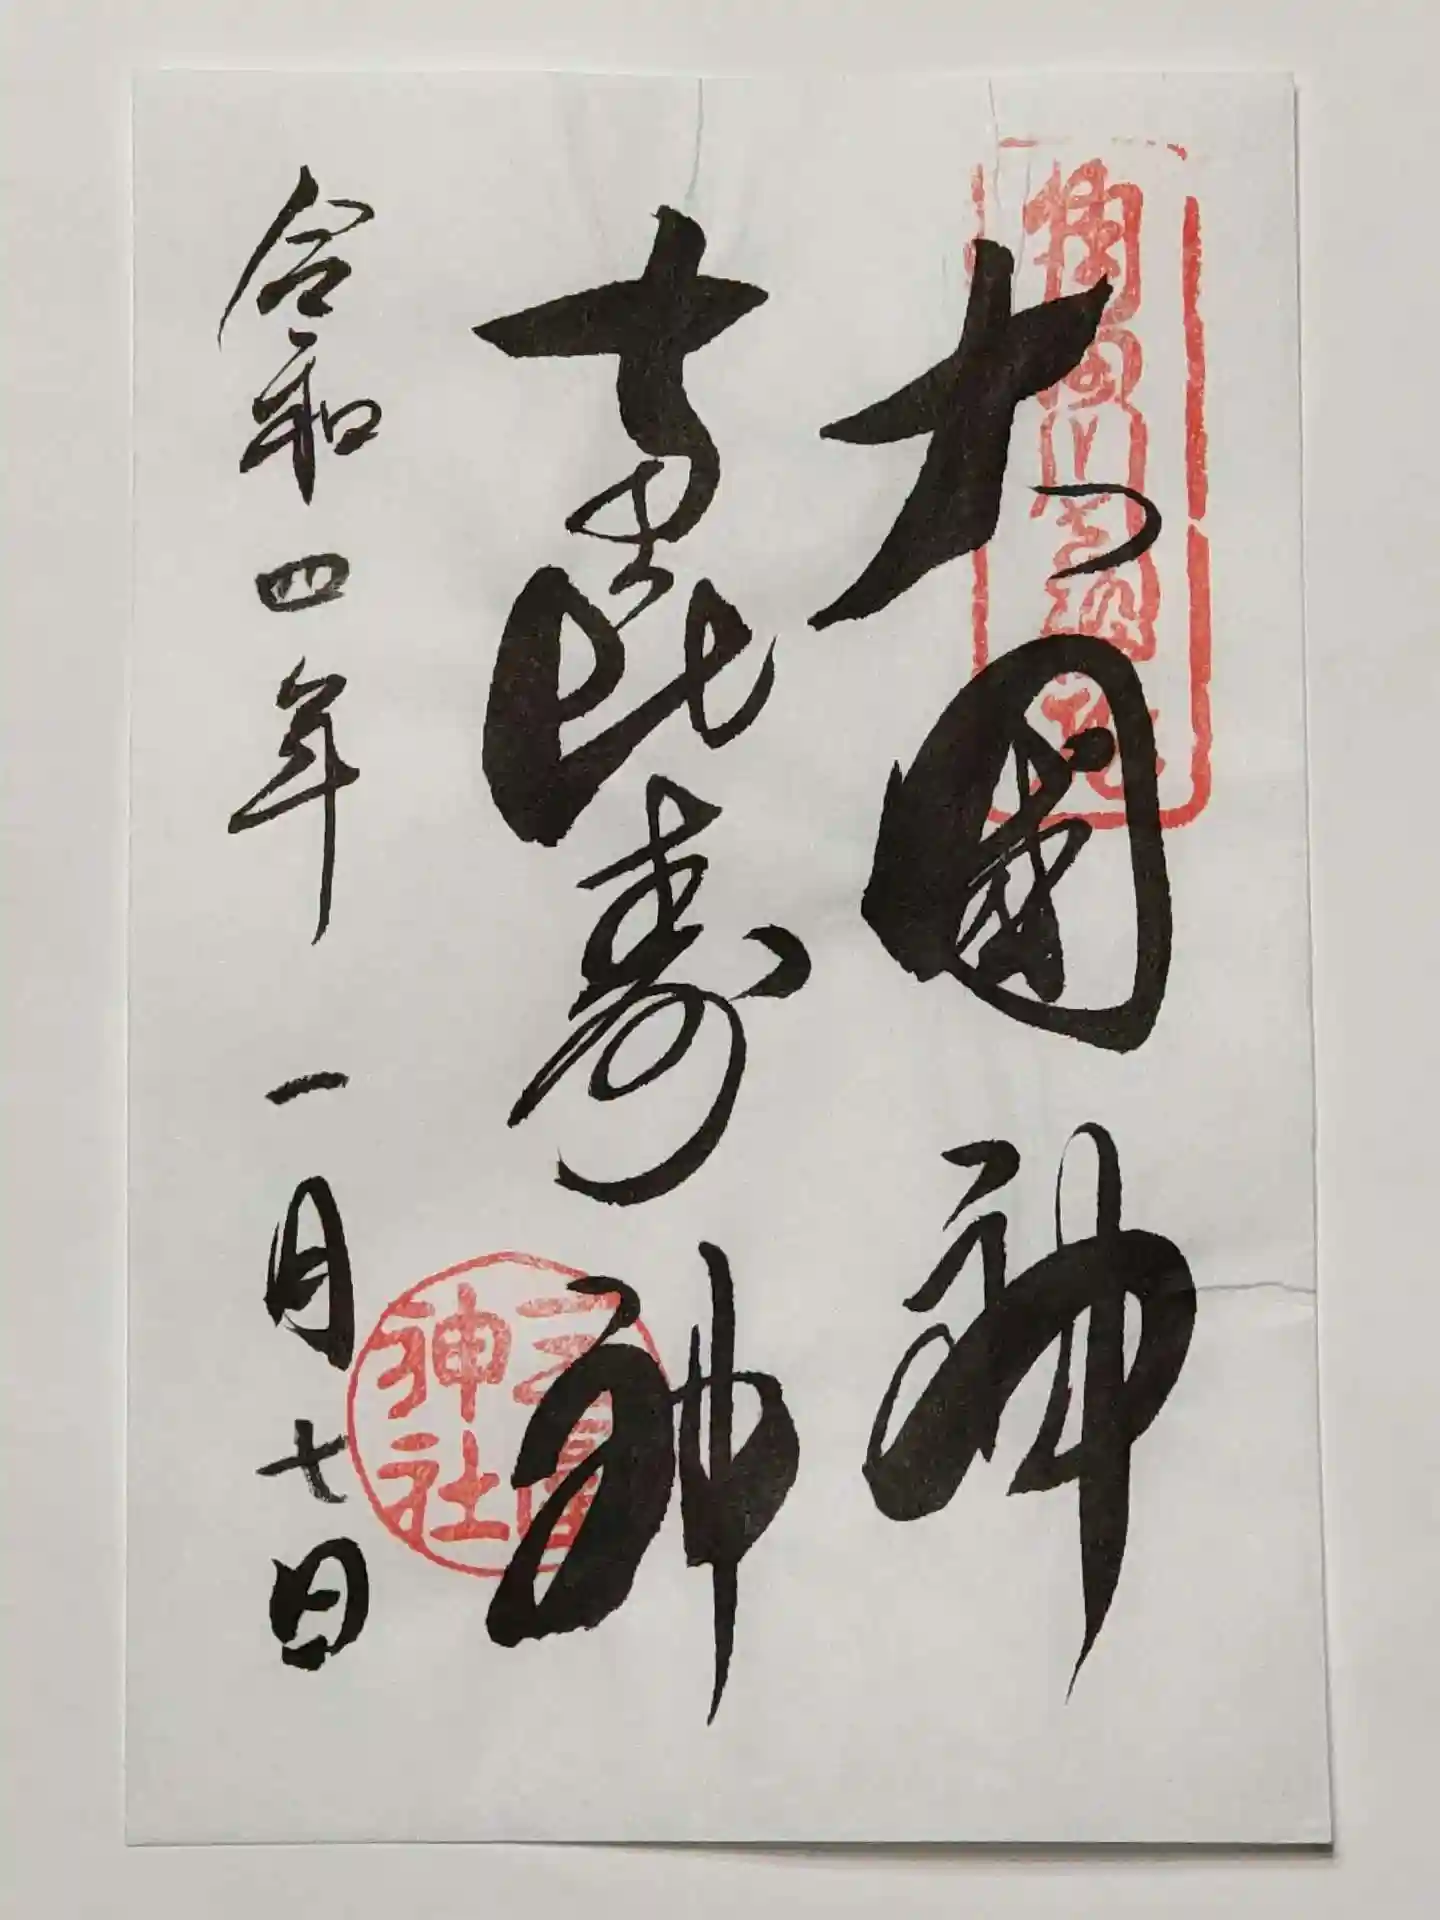 大國神
恵比寿神
令和四年一月七日
三圍神社